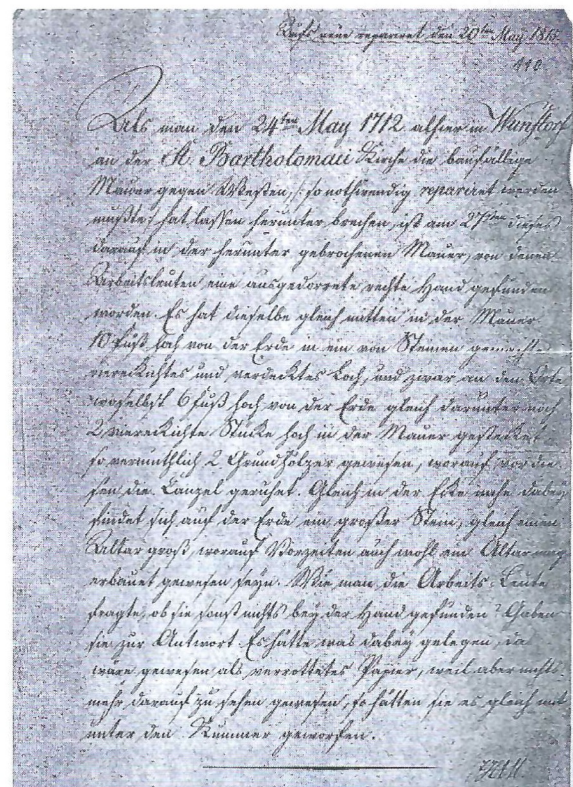 Aufs neue reparirt den 20ten May 1815
110
Als man den 24ten May 1712 alhier in Wunstorf
an der St. Bartholomäii Kirche die baufällige
Mauer gegen Westen, /: so nothwendig reparirt werden
mußte: hat lassen herunter brechen, ist am 27ten dieses
darauf in der herunter gebrochenen Mauer, von denen
Arbeitsleuten eine ausgedorrete rechte Hand gefunden
worden. Es hat dieselbe gleich mitten in der Mauer
10 Fuß hoch von der Erde in ein von Steinen gemachtes
viereckichtes und verdecktes Loch, und zwar an dem Orte
woselbst 6 Fuß hoch von der Erde gleich darunter noch
2 viereckichte Stücke hoch in der Mauer gestecket
so vermuthlich 2 Grundhölzer gewesen, worauf vor die-
sen die Canzel geruhet. Gleich in der Ecke nahe dabey
findet sich auf der Erde ein großer Stein, gleich einen
Altar groß worauf Vorzeiten auch wohl ein Altar mag
erbauet gewesen seyn. Wie man die Arbeits-Leute
fragte, ob sie sonst nichts bey der Hand gefunden? Gaben
sie zur Antwort. Es hätte was dabey gelegen, da
wäre gewesen als verrottetes Papier, weil aber nichts
mehr darauf zu sehen gewesen, so hätten sie es gleich mit
unter den Kummer geworfen.